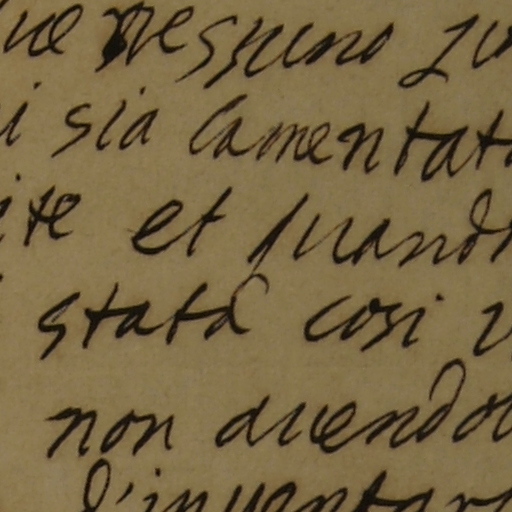 nessuno
sia lamentat
et quand
stata cosi
non auendo
l'inuentar